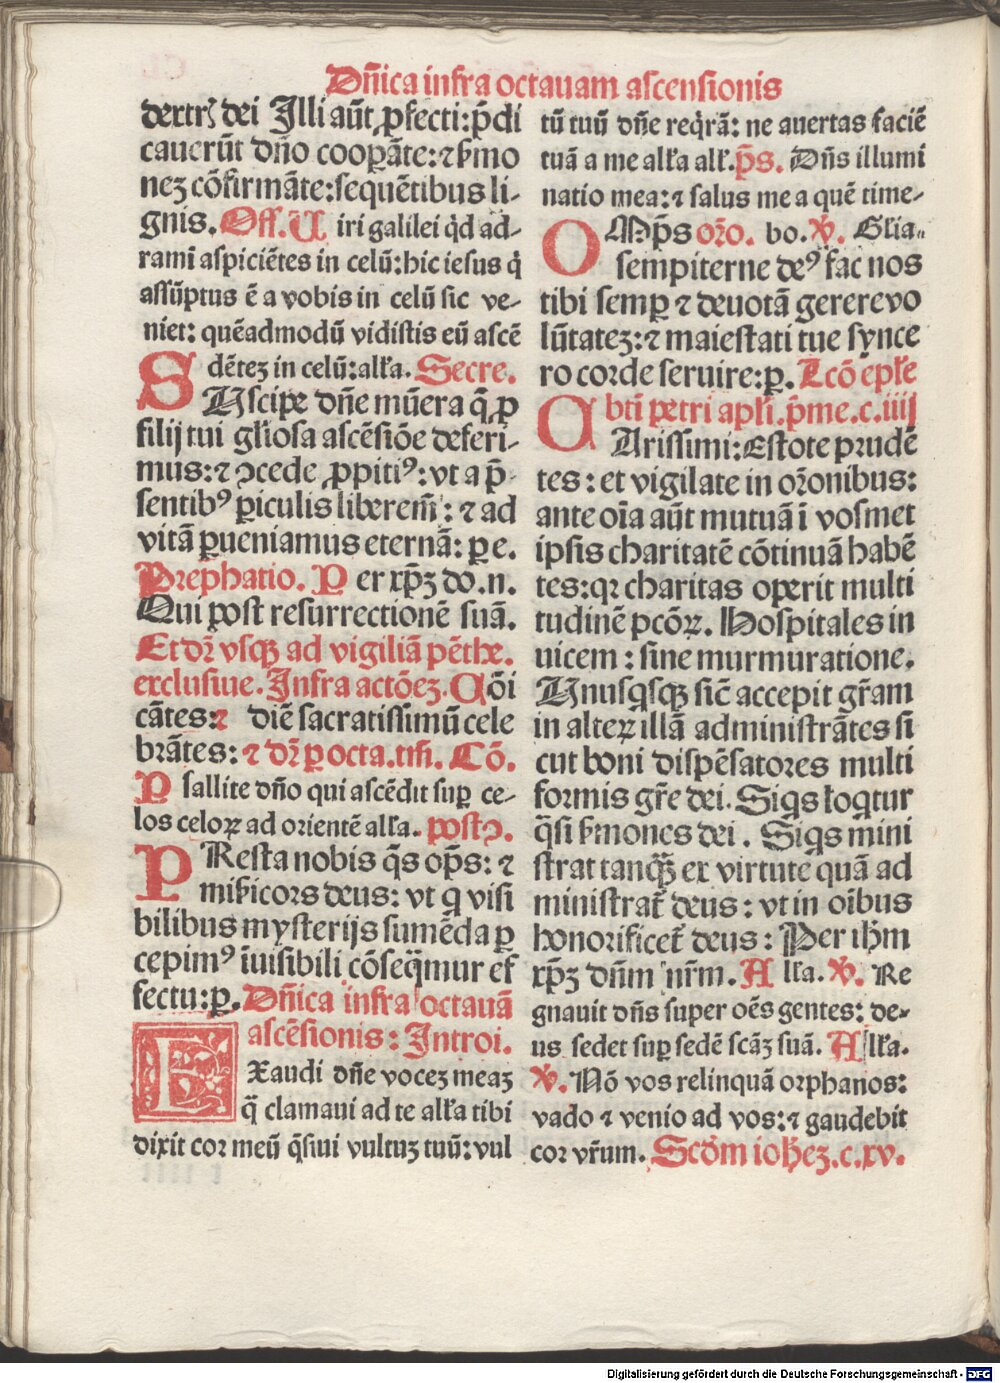 Dñica infra octauam ascensionis
dextrꝭ dei Illi aūt ꝓfecti: p̄di
cauerūt dño coopāte: ⁊ ẜmo
neꝫ cōfirmāte: sequētibus si-
gnis. Off. Uiri galilei qͥd ad-
ramī aspiciētes in celū: hic iesus qͥ
assūptus ē a vobis in celū sic ve-
niet: quēadmodū vidistis eū ascē
dēteꝫ in celū: alľa. Secre.
SUscipe dñe mūera q̄ ꝓ
filij tui gľiosa ascēsiōe deferi-
mus: ⁊ ↄcede ꝓpitiꝰ: vt a p̄-
sentibꝰ ꝑiculis liberem̄: ⁊ ad
vitā ꝑueniamus eternā: ꝑ e.
Prephatio. Per xp̄ꝫ do. n.
Qui post resurrectionē suā.
Et dr̄ vsqꝫ ad vigiliā pēthe.
exclusiue. Infra actōeꝫ. Cōi
cātes: ⁊ diē sacratissimū cele
brātes: ⁊ dr̄ ꝑ octa. tm̄. Cō.
Psallite dño qui ascēdit suꝑ ce-
los celoꝝ ad orientē alľa. postↄ.
PResta nobis q̄s op̄s: ⁊
miẜicors deus: vt q̄ visi
bilibus mysterijs sumēda ꝑ
cepimꝰ īuisibili cōseq̄mur ef
fectu: ꝑ. Dñica infra octauā
ascēsionis: Introi.
EXaudi dñe voceꝫ meaꝫ
q̄ clamaui ad te alľa tibi
dixit cor meū q̄siui vultuꝫ tuū: vul
tū tuū dñe reqͥrā: ne auertas faciē
tuā a me alľa alľ. p̄s. Dñs illumi
natio mea: ⁊ salus mea quē time-
OMp̄s oꝛo. bo. ꝟ. Gľia-
sempiterne deꝰ fac nos
tibi semꝑ ⁊ deuotā gerere vo
lūtateꝫ: ⁊ maiestati tue synce
ro corde seruire: ꝑ. Lcō epľe
bti petri apľi. p̄me. c. iiij
CArissimi: Estote prudē
tes: et vigilate in oꝛonibus:
ante oīa aūt mutuā ī vosmet
ipsis charitatē cōtinuā habē
tes: qꝛ charitas operit multi
tudinē pcōꝝ. Hospitales in
uicem: sine murmuratione.
Unusqͥsqꝫ sič accepit gr̄am
in alteꝝ illā administrātes si
cut boni dispēsatores multi
formis gr̄e dei. Siqͥs loqͥtur
q̄si ẜmones dei. Siqͥs mini
strat tanqꝫ ex virtute quā ad
ministrat̄ deus: vt in oībus
honorificet̄ deus: Per ihm̄
xp̄ꝫ dnm̄ nr̄m. Alľa. ꝟ. Re
gnauit dñs super oēs gentes: de-
us sedet suꝑ sedē scāꝫ suā. Alľa.
ꝟ. Nō vos relinquā orphanos:
vado ⁊ venio ad vos: ⁊ gaudebit
cor vr̄um. Scd̄m ioheꝫ. c. xv.
Digitalisierung gefördert durch die Deutsche Forschungsgemeinschaft - DFG